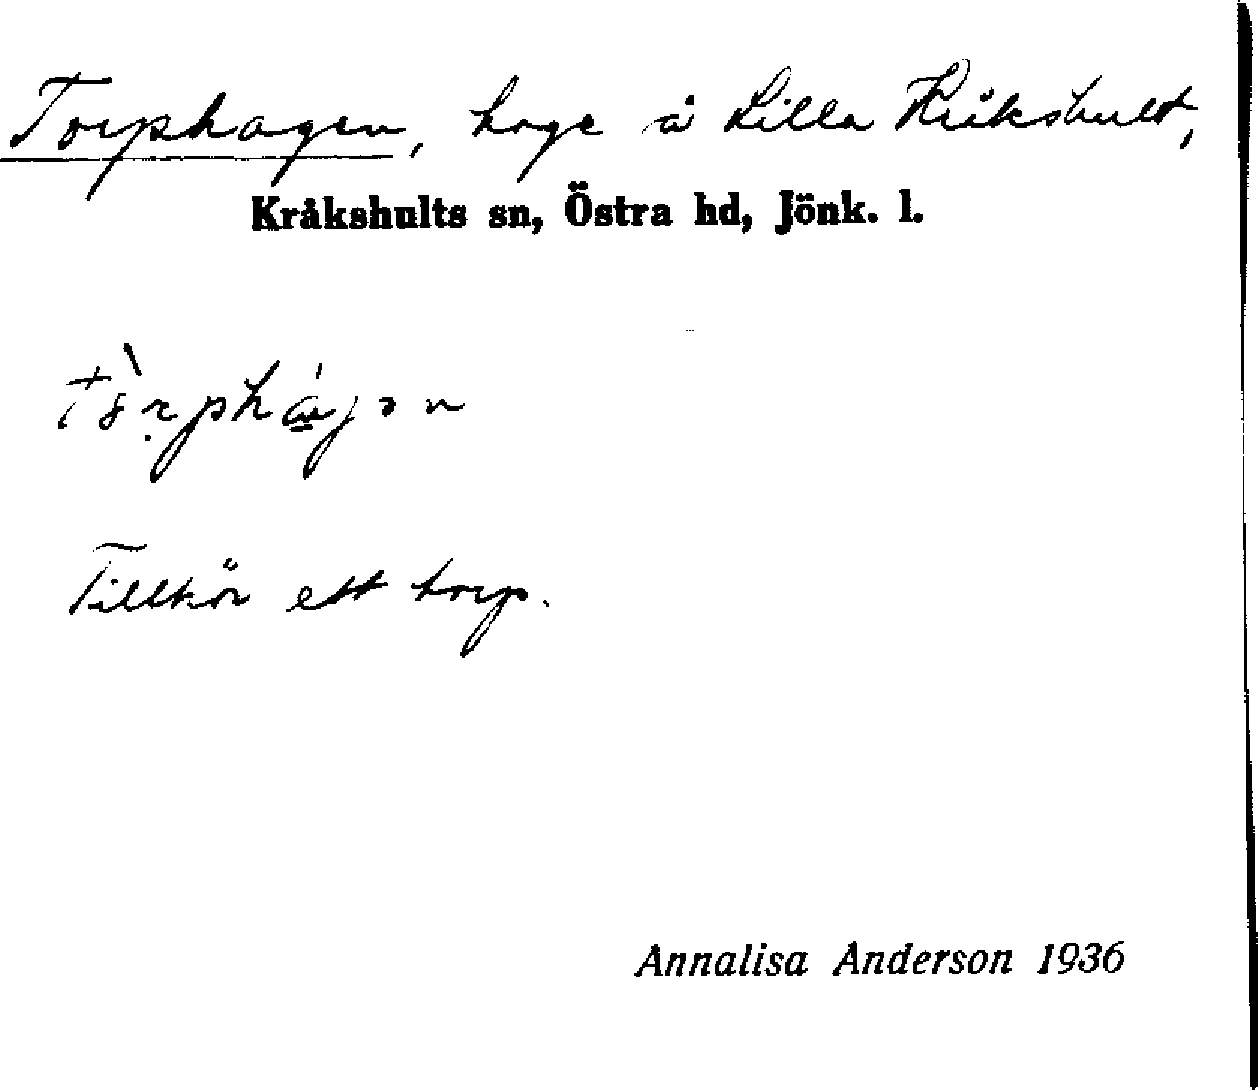 Torphagen, hage å Lilla Kråkshult,
Kråkshults sn, Östra hd, Jönk. l.
Tillhör ett torp.
Annalisa Anderson 1936